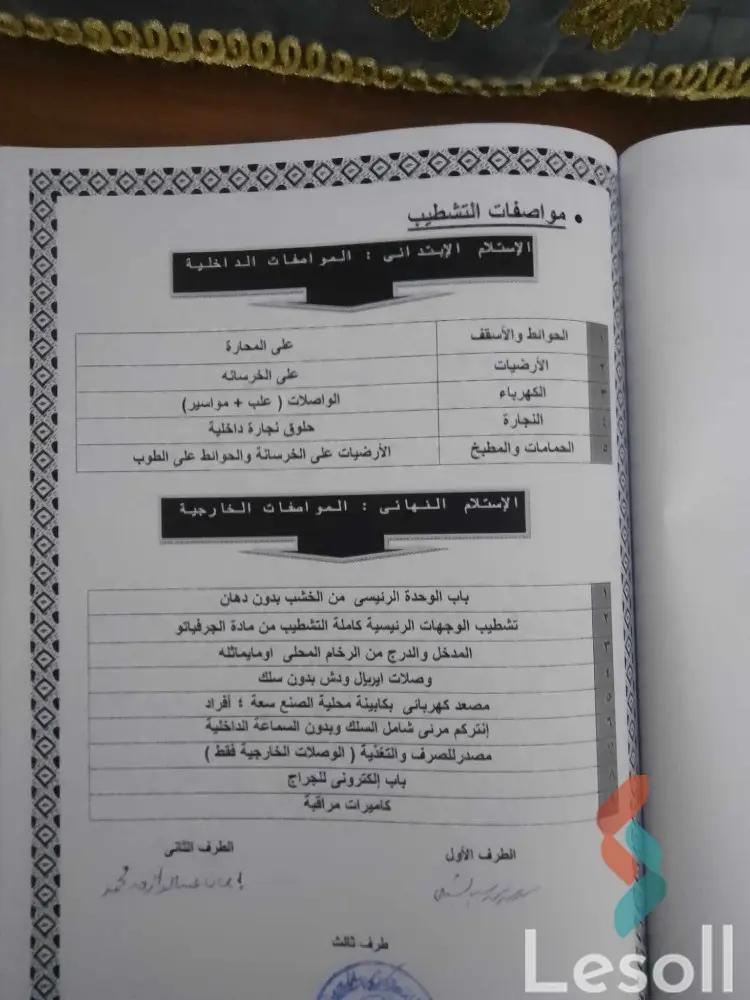 • مواصفات التشطيب
الإستلام الإبتدائى : المواصفات الداخلية
١ الحوائط والأسقف على المحارة
٢ الأرضيات على الخرسانه
٣ الكهرباء الواصلات ( علب + مواسير)
٤ النجارة حلوق نجارة داخلية
٥ الحمامات والمطبخ الأرضيات على الخرسانة والحوائط على الطوب
الإستلام النهائى : المواصفات الخارجية
١ باب الوحدة الرئيسى من الخشب بدون دهان
٢ تشطيب الوجهات الرئيسية كاملة التشطيب من مادة الجرفياتو
٣ المدخل والدرج من الرخام المحلى اومايماثله
٤ وصلات ايريال ودش بدون سلك
٥ مصعد كهربائى بكابينة محلية الصنع سعة ٤ أفراد
٦ إنتركم مرئى شامل السلك وبدون السماعة الداخلية
٧ مصدرللصرف والتغذية ( الوصلات الخارجية فقط )
٨ باب إلكترونى للجراج
كاميرات مراقبة
الطرف الأول الطرف الثانى
طرف ثالث
Lesoll